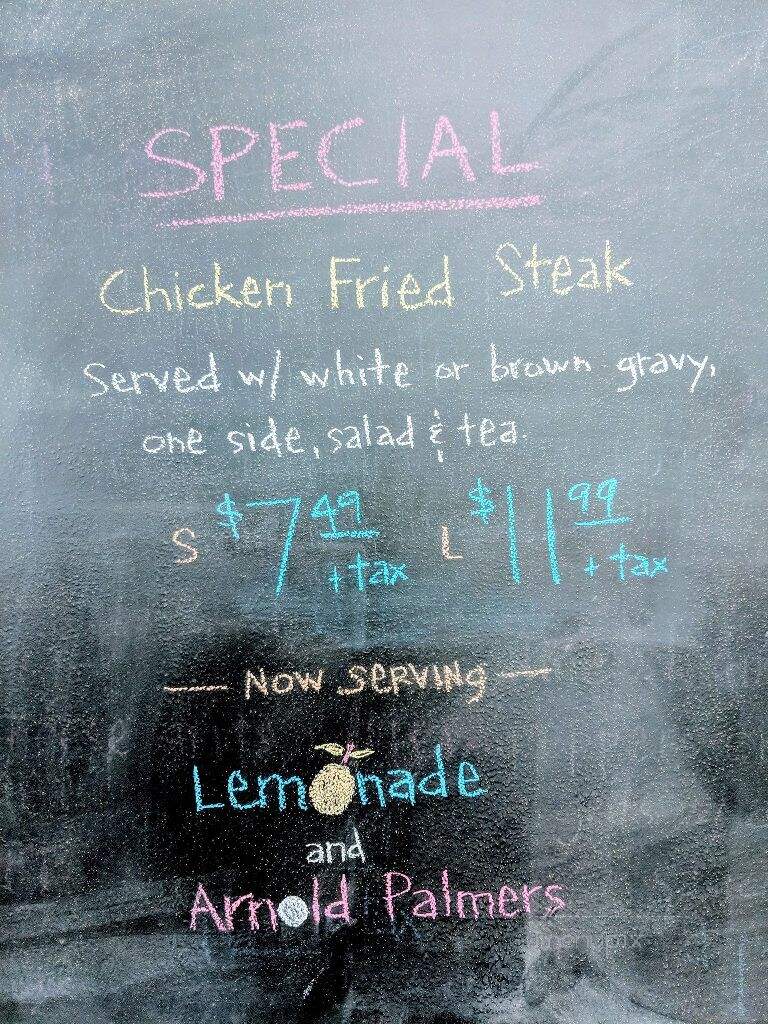 SPECIAL
Chicken Fried Steak
Served w/ white or brown gravy,
one side, salad & tea.
S $7 49 + tax L $11 99 + tax
— NOW SERVING —
Lemonade
and
Arnold Palmers
menupix